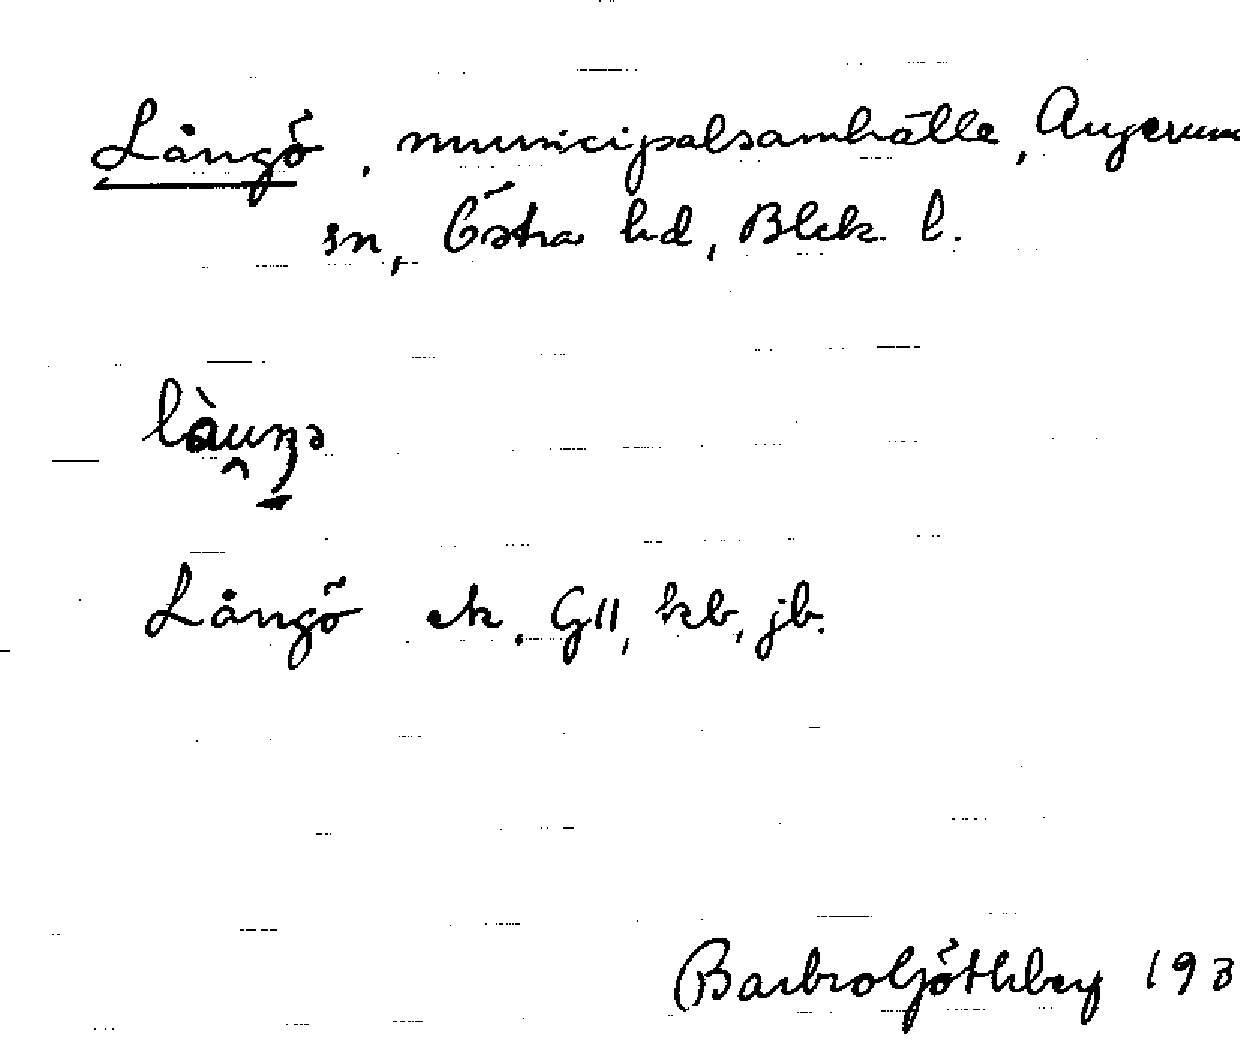 Långö, municipalsamhälle, Augerum
sn, Östra hd, Blek. l.
Långö ek. GII, kb, jb.
Barbro Göthberg 193